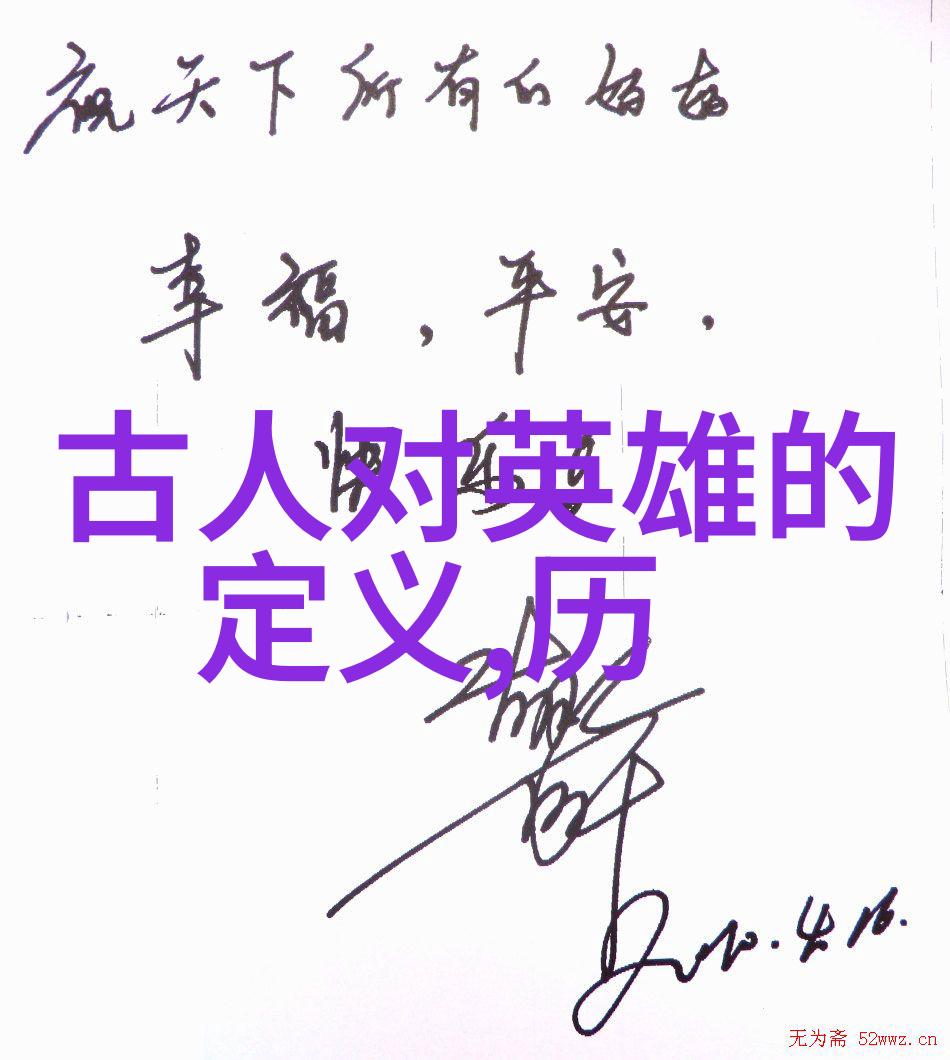 祝天下所有的妈妈
幸福，平安，
快乐！
古人对英雄的
定义,历
2010.4.16.
无为斋 52wwz.cn